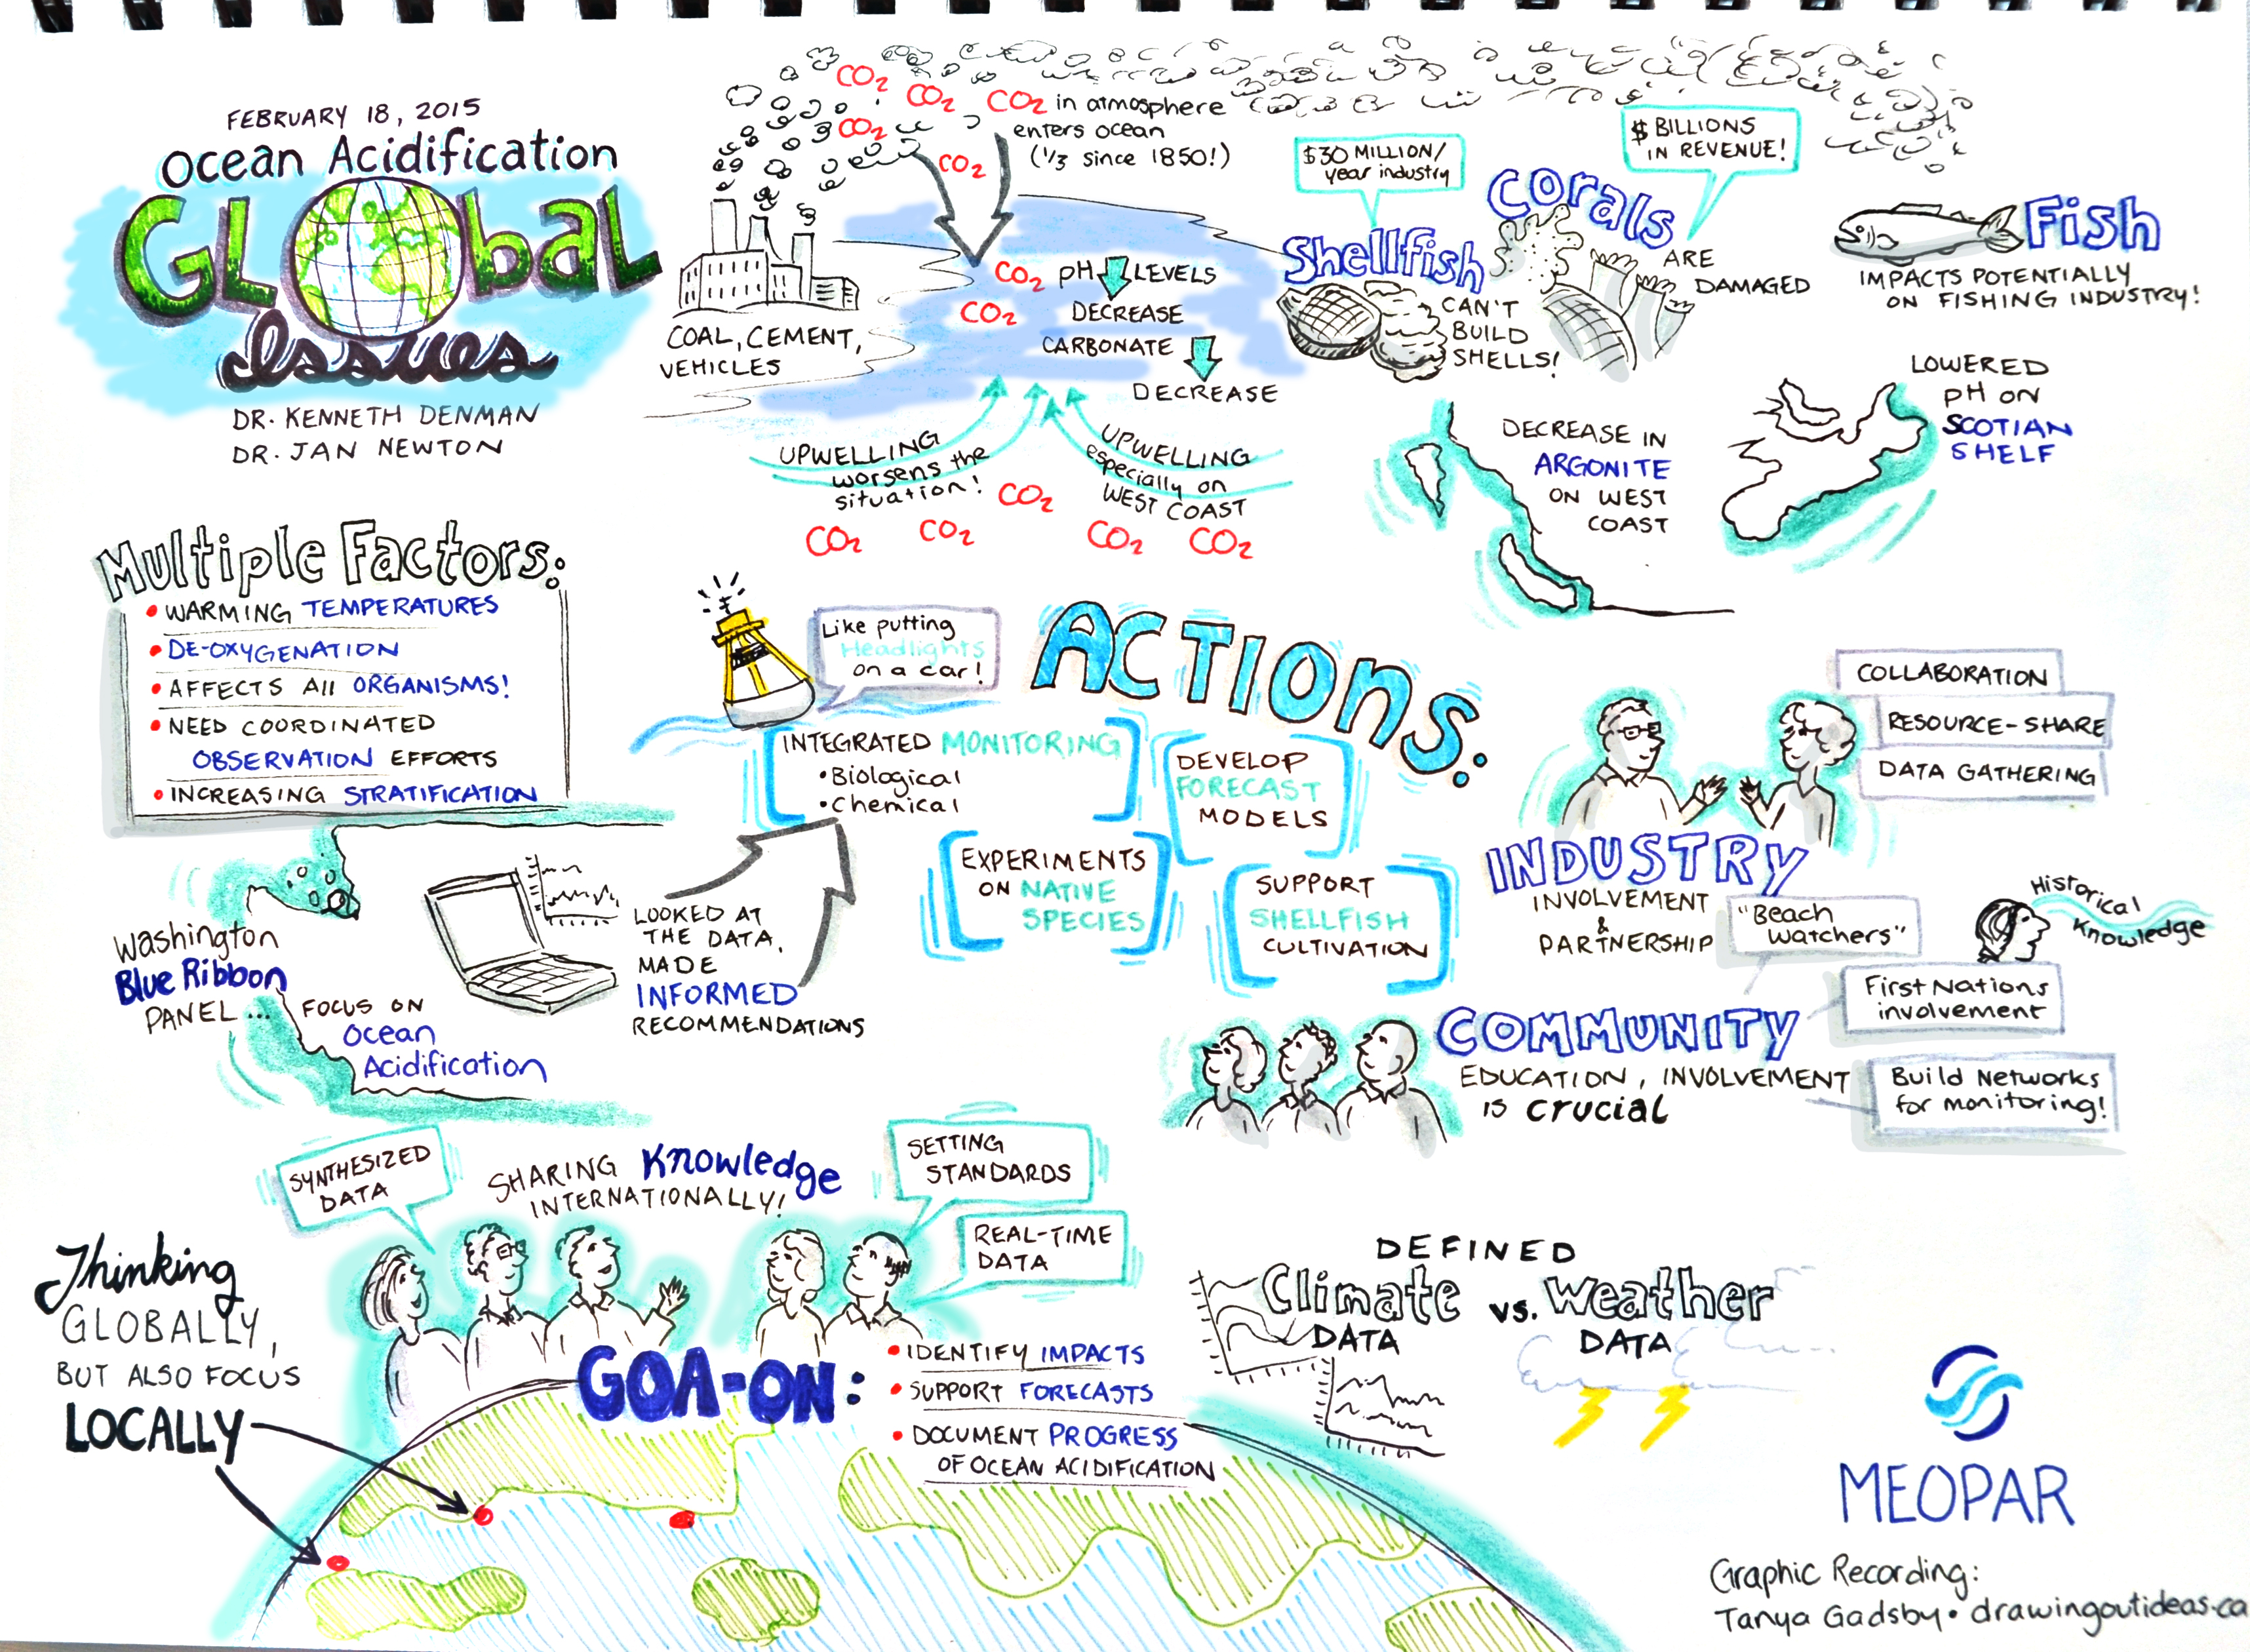 FEBRUARY 18, 2015
Ocean Acidification
GLObaL
Issues
DR. KENNETH DENMAN
DR. JAN NEWTON
CO2
CO2
CO2
CO2
CO2 in atmosphere
enters ocean
(1/3 since 1850!)
COAL, CEMENT,
VEHICLES
CO2
CO2
pH LEVELS
DECREASE
CARBONATE
DECREASE
UPWELLING
worsens the
situation!
UPWELLING
especially on
WEST COAST
CO2
CO2
CO2
CO2
CO2
$30 MILLION/
year industry
Shellfish
CAN'T
BUILD
SHELLS!
$ BILLIONS
IN REVENUE!
Corals
ARE
DAMAGED
Fish
IMPACTS POTENTIALLY
ON FISHING INDUSTRY!
DECREASE IN
ARGONITE
ON WEST
COAST
LOWERED
pH ON
SCOTIAN
SHELF
Multiple Factors:
• WARMING TEMPERATURES
• DE-OXYGENATION
• AFFECTS All ORGANISMS!
• NEED COORDINATED
OBSERVATION EFFORTS
• INCREASING STRATIFICATION
Like putting
Headlights
on a car!
ACTIONS:
INTEGRATED MONITORING
• Biological
• Chemical
DEVELOP
FORECAST
MODELS
EXPERIMENTS
ON NATIVE
SPECIES
SUPPORT
SHELLFISH
CULTIVATION
COLLABORATION
RESOURCE-SHARE
DATA GATHERING
INDUSTRY
INVOLVEMENT
&
PARTNERSHIP
"Beach
Watchers"
Historical
Knowledge
First Nations
involvement
COMMUNITY
EDUCATION, INVOLVEMENT
IS crucial
Build Networks
for monitoring!
Washington
Blue Ribbon
PANEL...
FOCUS ON
Ocean
Acidification
LOOKED AT
THE DATA,
MADE
INFORMED
RECOMMENDATIONS
SYNTHESIZED
DATA
SHARING Knowledge
INTERNATIONALLY!
SETTING
STANDARDS
REAL-TIME
DATA
Thinking
GLOBALLY,
BUT ALSO FOCUS
LOCALLY
GOA-ON:
• IDENTIFY IMPACTS
• SUPPORT FORECASTS
• DOCUMENT PROGRESS
OF OCEAN ACIDIFICATION
DEFINED
Climate vs. Weather
DATA DATA
MEOPAR
Graphic Recording:
Tanya Gadsby • drawingoutideas.ca